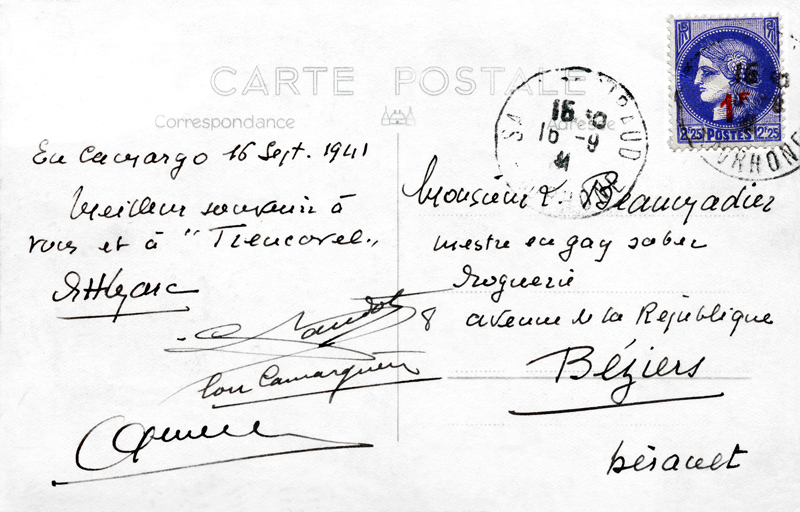 CARTE POSTALE
Correspondance
Adresse
En Camargo 16 Sept. 1941
Meilleur souvenir à
vous et à "Trencavel"
lou Camarguen
16
16 -9
41
1F
2F25 POSTES 2F25
RHONE
Monsieur
mestre en gay saber
Droguerie
8 avenue de la République
Béziers
Hérault